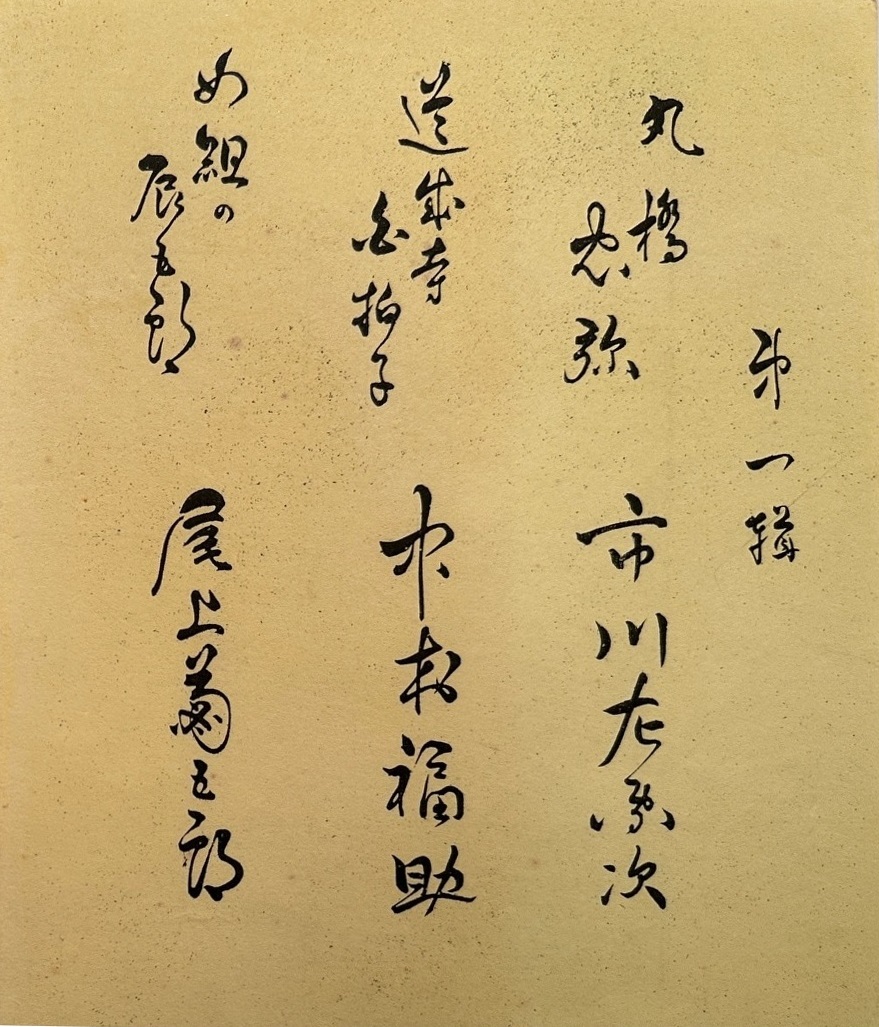 第一輯
丸橋
忠弥
市川左團次
道成寺
白拍子
中村福助
め組の
辰五郎
尾上菊五郎